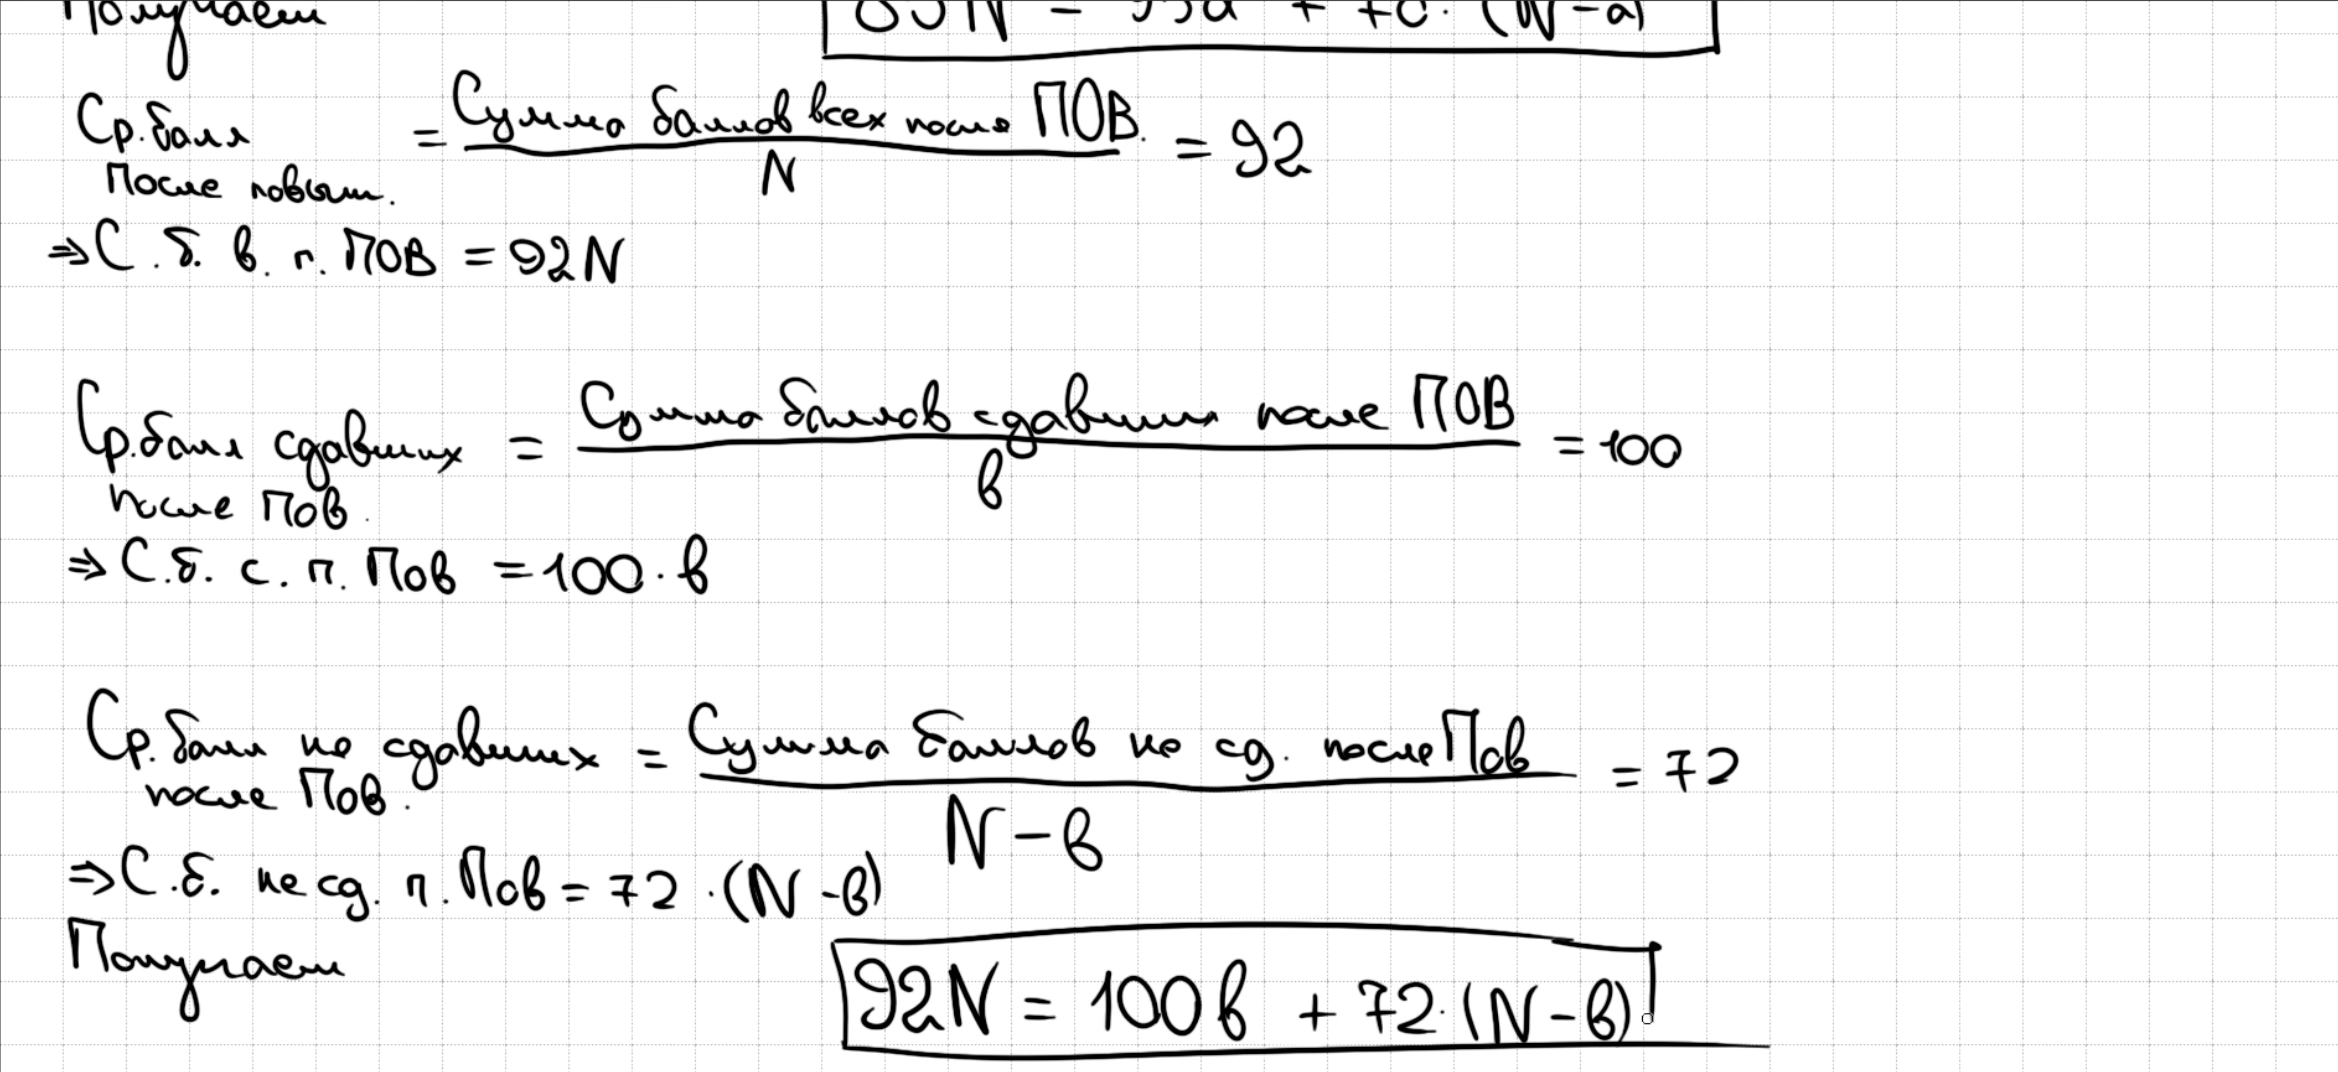 Получаем
Ср. балл после повыш. = Сумма баллов всех после ПОВ. / N = 92
⇒ С. б. в. п. ПОВ = 92N
Ср. балл сдавших после Пов. = Сумма баллов сдавших после ПОВ / в = 100
⇒ С.б. с. п. Пов = 100 · в
Ср. балл не сдавших после Пов. = Сумма баллов не сд. после Пов / N - в = 72
⇒ С.б. не сд. п. Пов = 72 · (N - в)
Получаем
92N = 100в + 72 · (N - в)